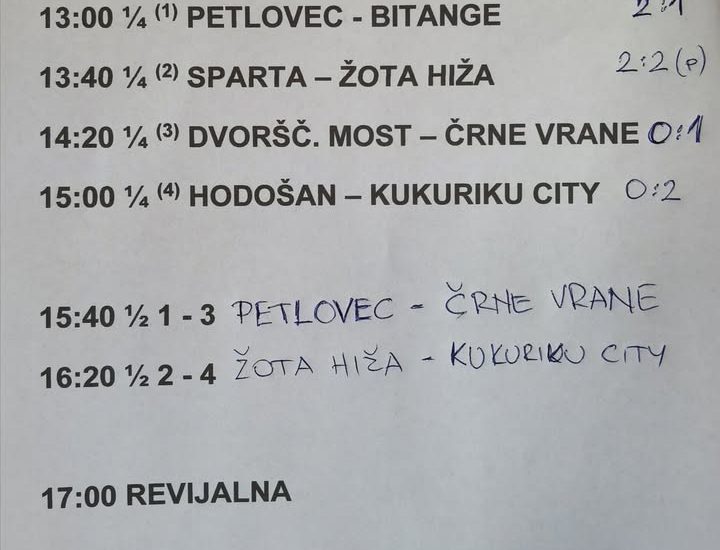 13:00 ¼ (1) PETLOVEC - BITANGE 2:1
13:40 ¼ (2) SPARTA – ŽOTA HIŽA 2:2 (P)
14:20 ¼ (3) DVORŠČ. MOST – ČRNE VRANE 0:1
15:00 ¼ (4) HODOŠAN – KUKURIKU CITY 0:2
15:40 ½ 1 - 3 PETLOVEC - ČRNE VRANE
16:20 ½ 2 - 4 ŽOTA HIŽA - KUKURIKU CITY
17:00 REVIJALNA